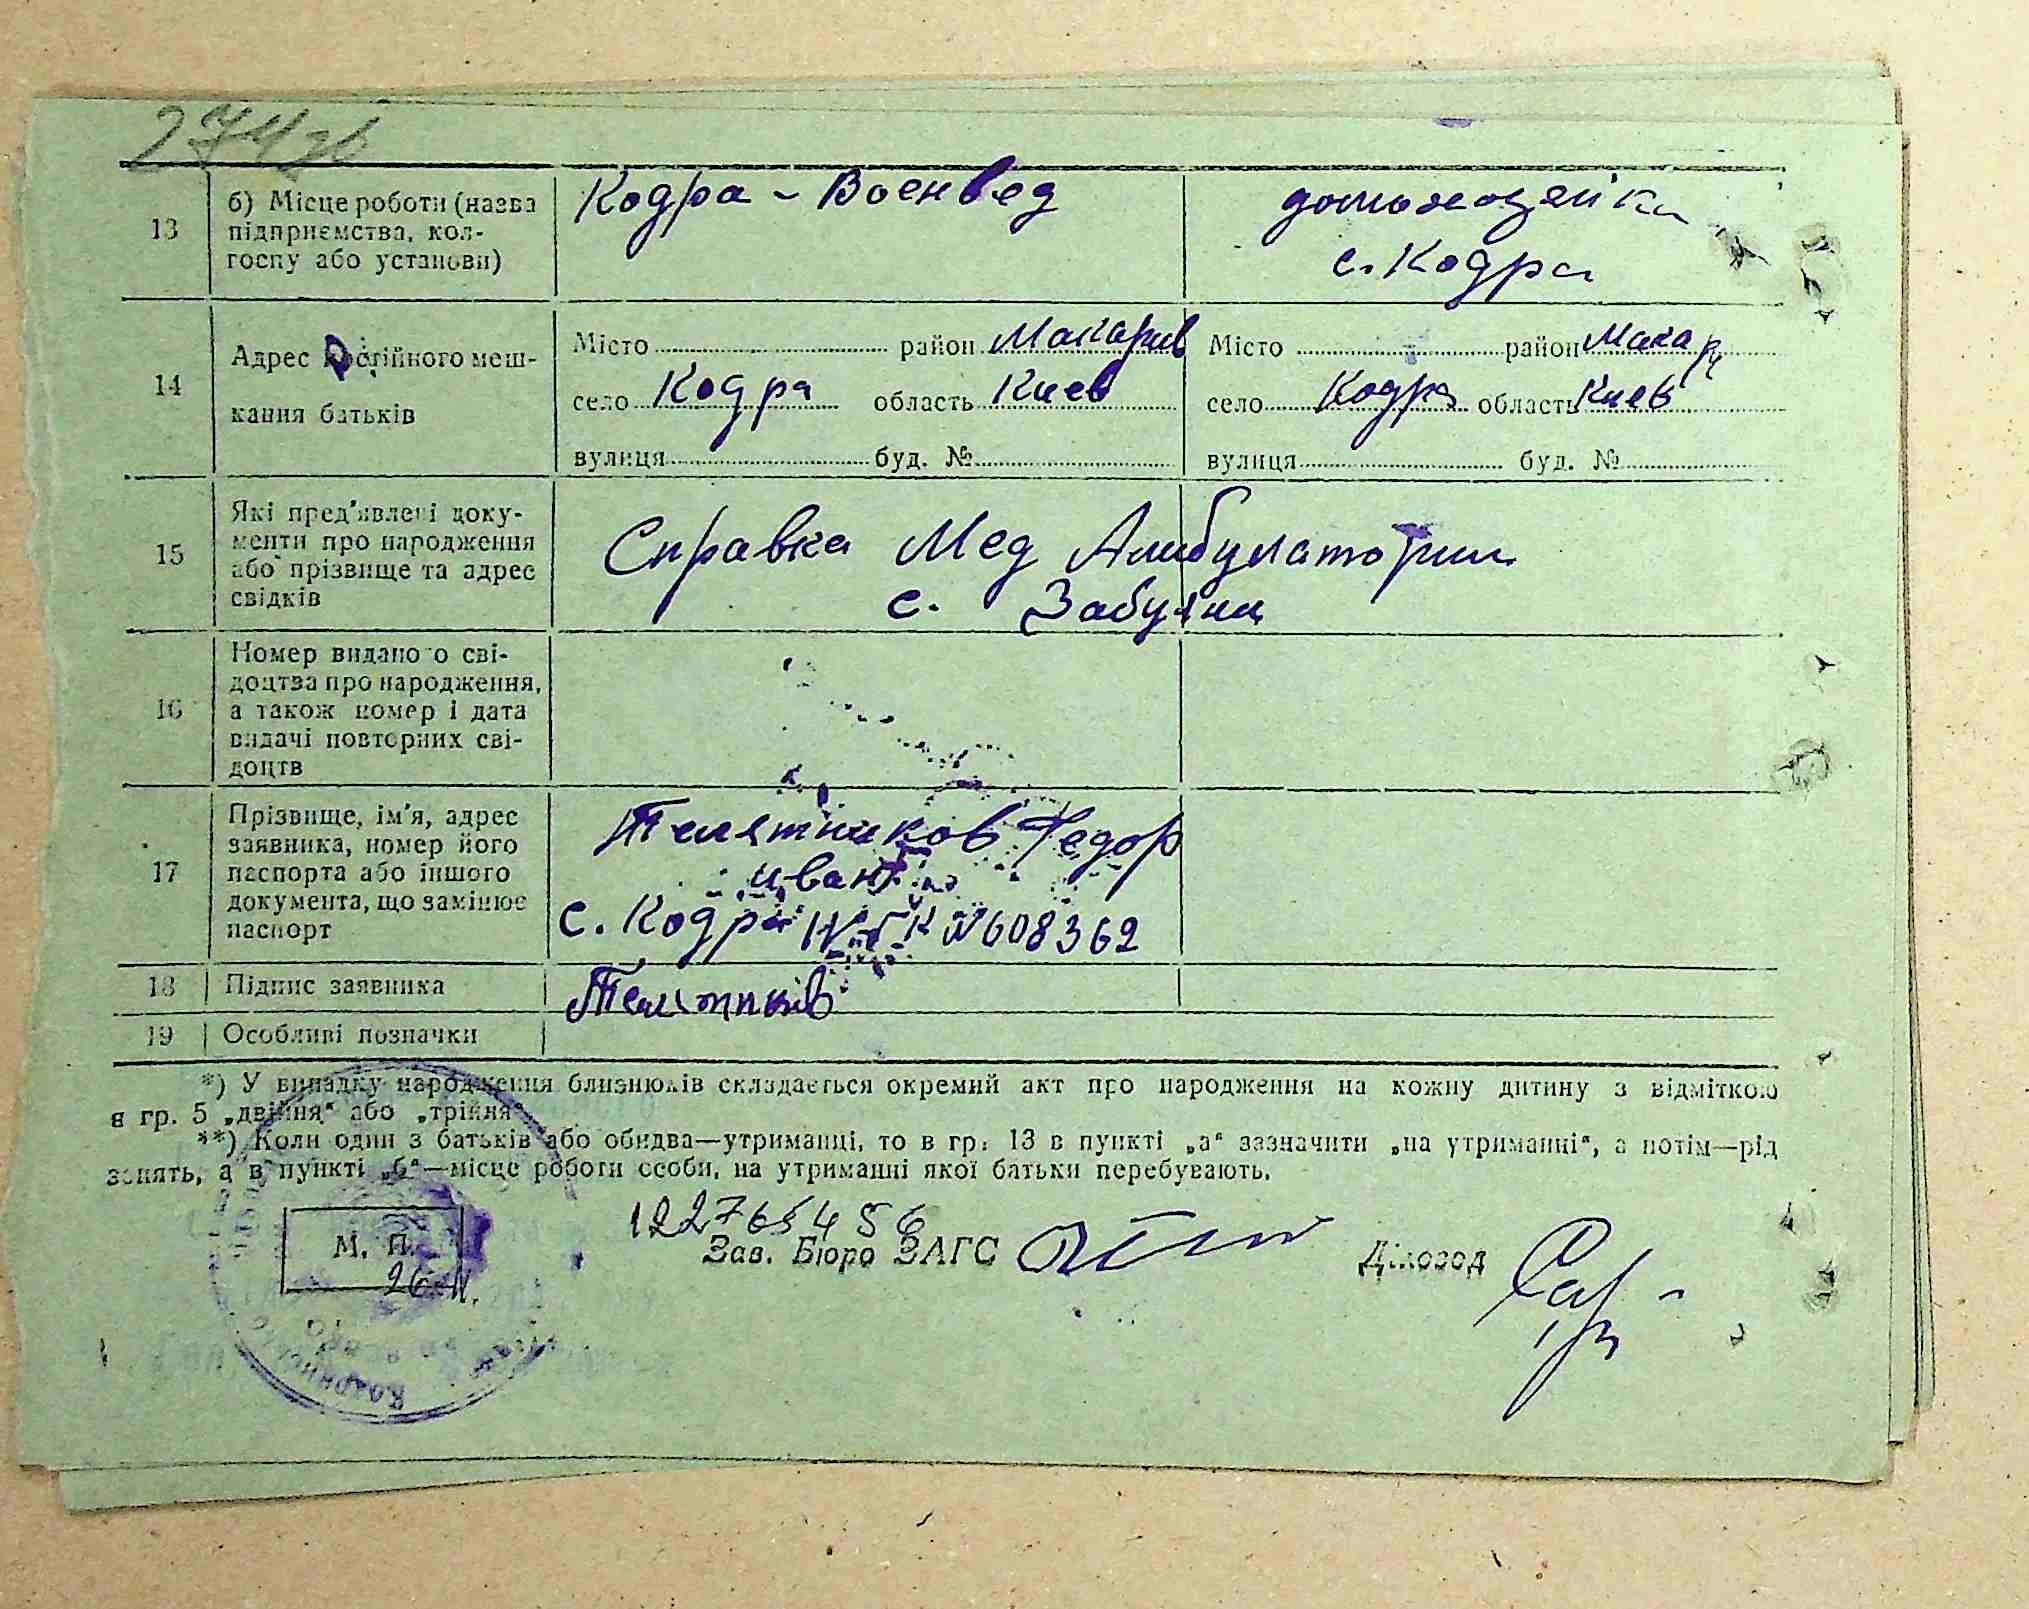 274зв
13
б) Місце роботи (назва
підприємства, кол-
госпу або установи)
Кодра - Военвед
домохозяйка
с. Кодра
14
Адрес постійного меш-
кання батьків
Місто район Макарив
село Кодра область Киев
вулиця буд. №
Місто район Макар
село Кодра область Киев
вулиця буд. №
15
Які пред'явлені доку-
менти про народження
або прізвище та адрес
свідків
Справка Мед Амбулатории
с. Забуяня
16
Номер виданого сві-
доцтва про народження,
а також номер і дата
видачі повторних сві-
доцтв
17
Прізвище, ім'я, адрес
заявника, номер його
паспорта або іншого
документа, що замінює
паспорт
Телятников Федор
Иван
с. Кодра N608362
18 Підпис заявника
Телятников
19 Особливі позначки
*) У випадку народження близнюків складається окремий акт про народження на кожну дитину з відміткою
в гр. 5 „двійня“ або „трійня“.
**) Коли один з батьків або обидва—утриманці, то в гр. 13 в пункті „а“ зазначити „на утриманні“, а потім—рід
занять, а в пункті „б“—місце роботи особи, на утриманні якої батьки перебувають.
М. П.
Зав. Бюро ЗАГС
Діловод